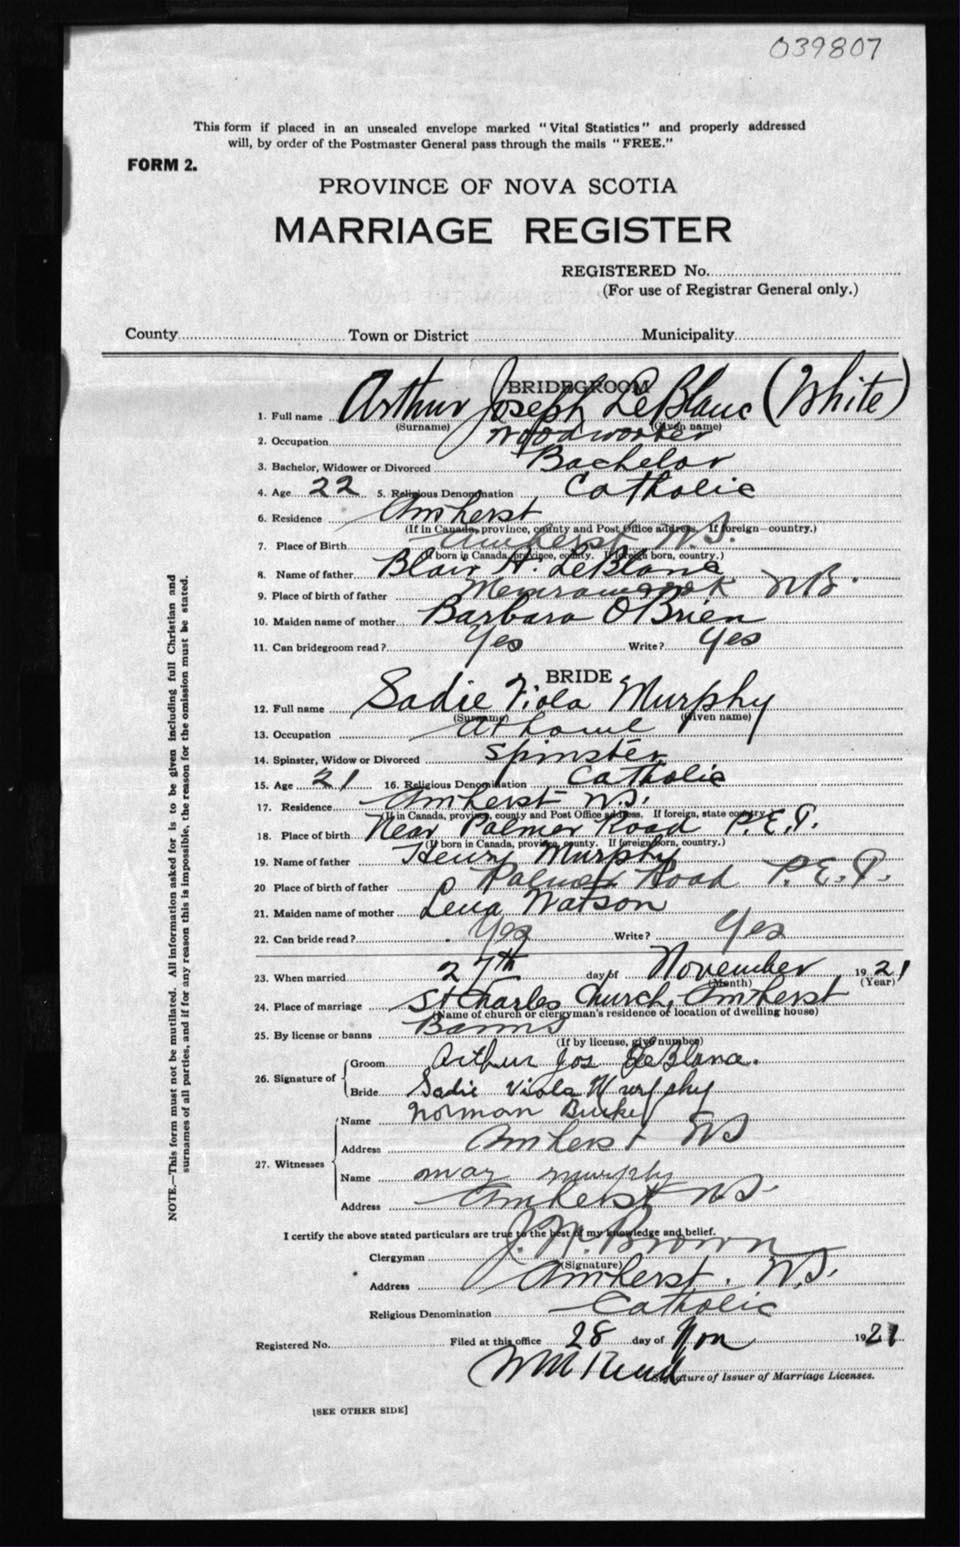 039807
This form if placed in an unsealed envelope marked "Vital Statistics" and properly addressed
will, by order of the Postmaster General pass through the mails "FREE."
FORM 2.
PROVINCE OF NOVA SCOTIA
MARRIAGE REGISTER
REGISTERED No.
(For use of Registrar General only.)
County Town or District Municipality
BRIDEGROOM
1. Full name Arthur Joseph LeBlanc (White)
(Surname) (Given name)
2. Occupation Woodworker
3. Bachelor, Widower or Divorced Bachelor
4. Age 22 5. Religious Denomination Catholic
6. Residence Amherst
(If in Canada, province, county and Post Office address. If foreign—country.)
7. Place of Birth Amherst N.S.
(If born in Canada, province, county. If foreign born, country.)
8. Name of father Blair H. LeBlanc
9. Place of birth of father Memramcook NB.
10. Maiden name of mother Barbara O'Brien
11. Can bridegroom read? Yes Write? Yes
BRIDE
12. Full name Sadie Viola Murphy
(Surname) (Given name)
13. Occupation At home
14. Spinster, Widow or Divorced Spinster
15. Age 21 16. Religious Denomination Catholic
17. Residence Amherst N.S.
(If in Canada, province, county and Post Office address. If foreign, state country.)
18. Place of birth Near Palmer Road P.E.I.
(If born in Canada, province, county. If foreign born, country.)
19. Name of father Henry Murphy
20 Place of birth of father Palmer Road P.E.I.
21. Maiden name of mother Lena Watson
22. Can bride read? Yes Write? Yes
23. When married 27th day of November 1921
(Month) (Year)
24. Place of marriage St Charles Church, Amherst
(Name of church or clergyman's residence or location of dwelling house)
25. By license or banns Banns
(If by license, give number)
26. Signature of Groom Arthur Jos LeBlanc.
Bride Sadie Viola Murphy
27. Witnesses Name Norman Burke
Address Amherst NS
Name May Murphy
Address Amherst NS
I certify the above stated particulars are true to the best of my knowledge and belief.
Clergyman J. W. Brown
(Signature)
Address Amherst. N.S.
Religious Denomination Catholic
Registered No. Filed at this office 28 day of Nov 1921
Signature of Issuer of Marriage Licenses.
[SEE OTHER SIDE]
NOTE.—This form must not be mutilated. All information asked for is to be given including full Christian and
surnames of all parties, and if for any reason this is impossible, the reason for the omission must be stated.